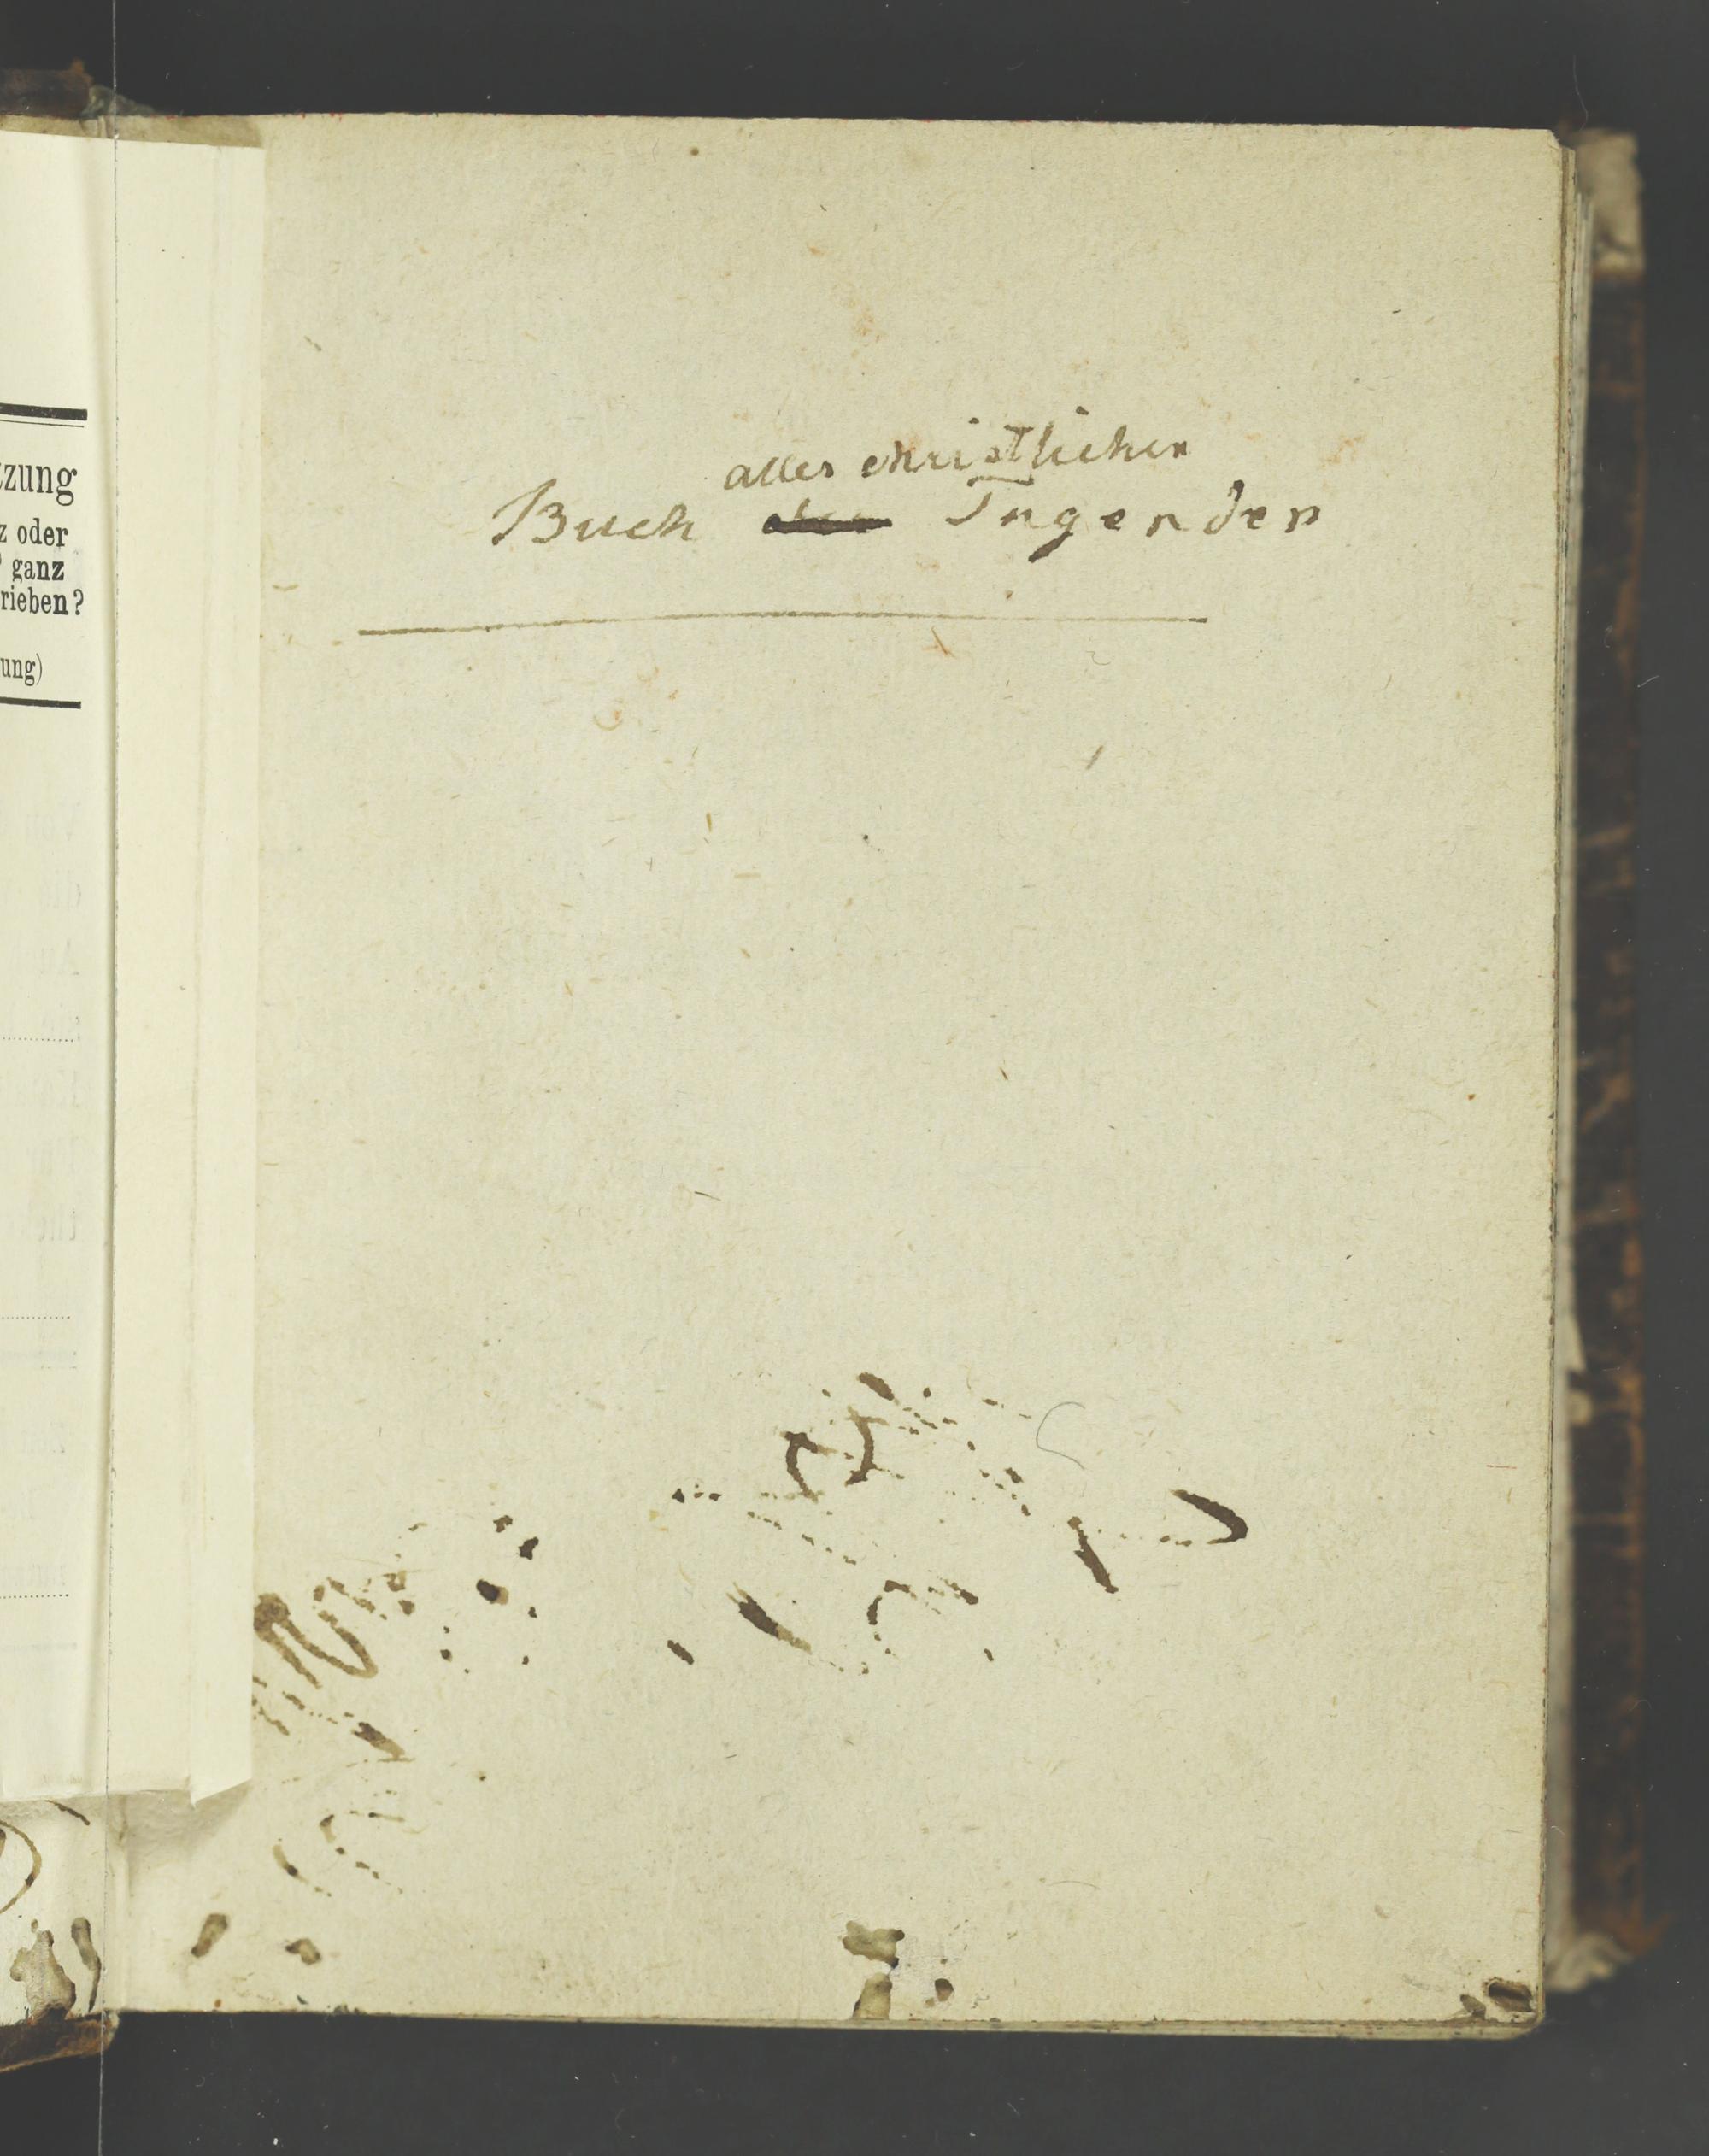 tzung
z oder
ganz
rieben?
ung)
aller christlichen
Buch Tugenden